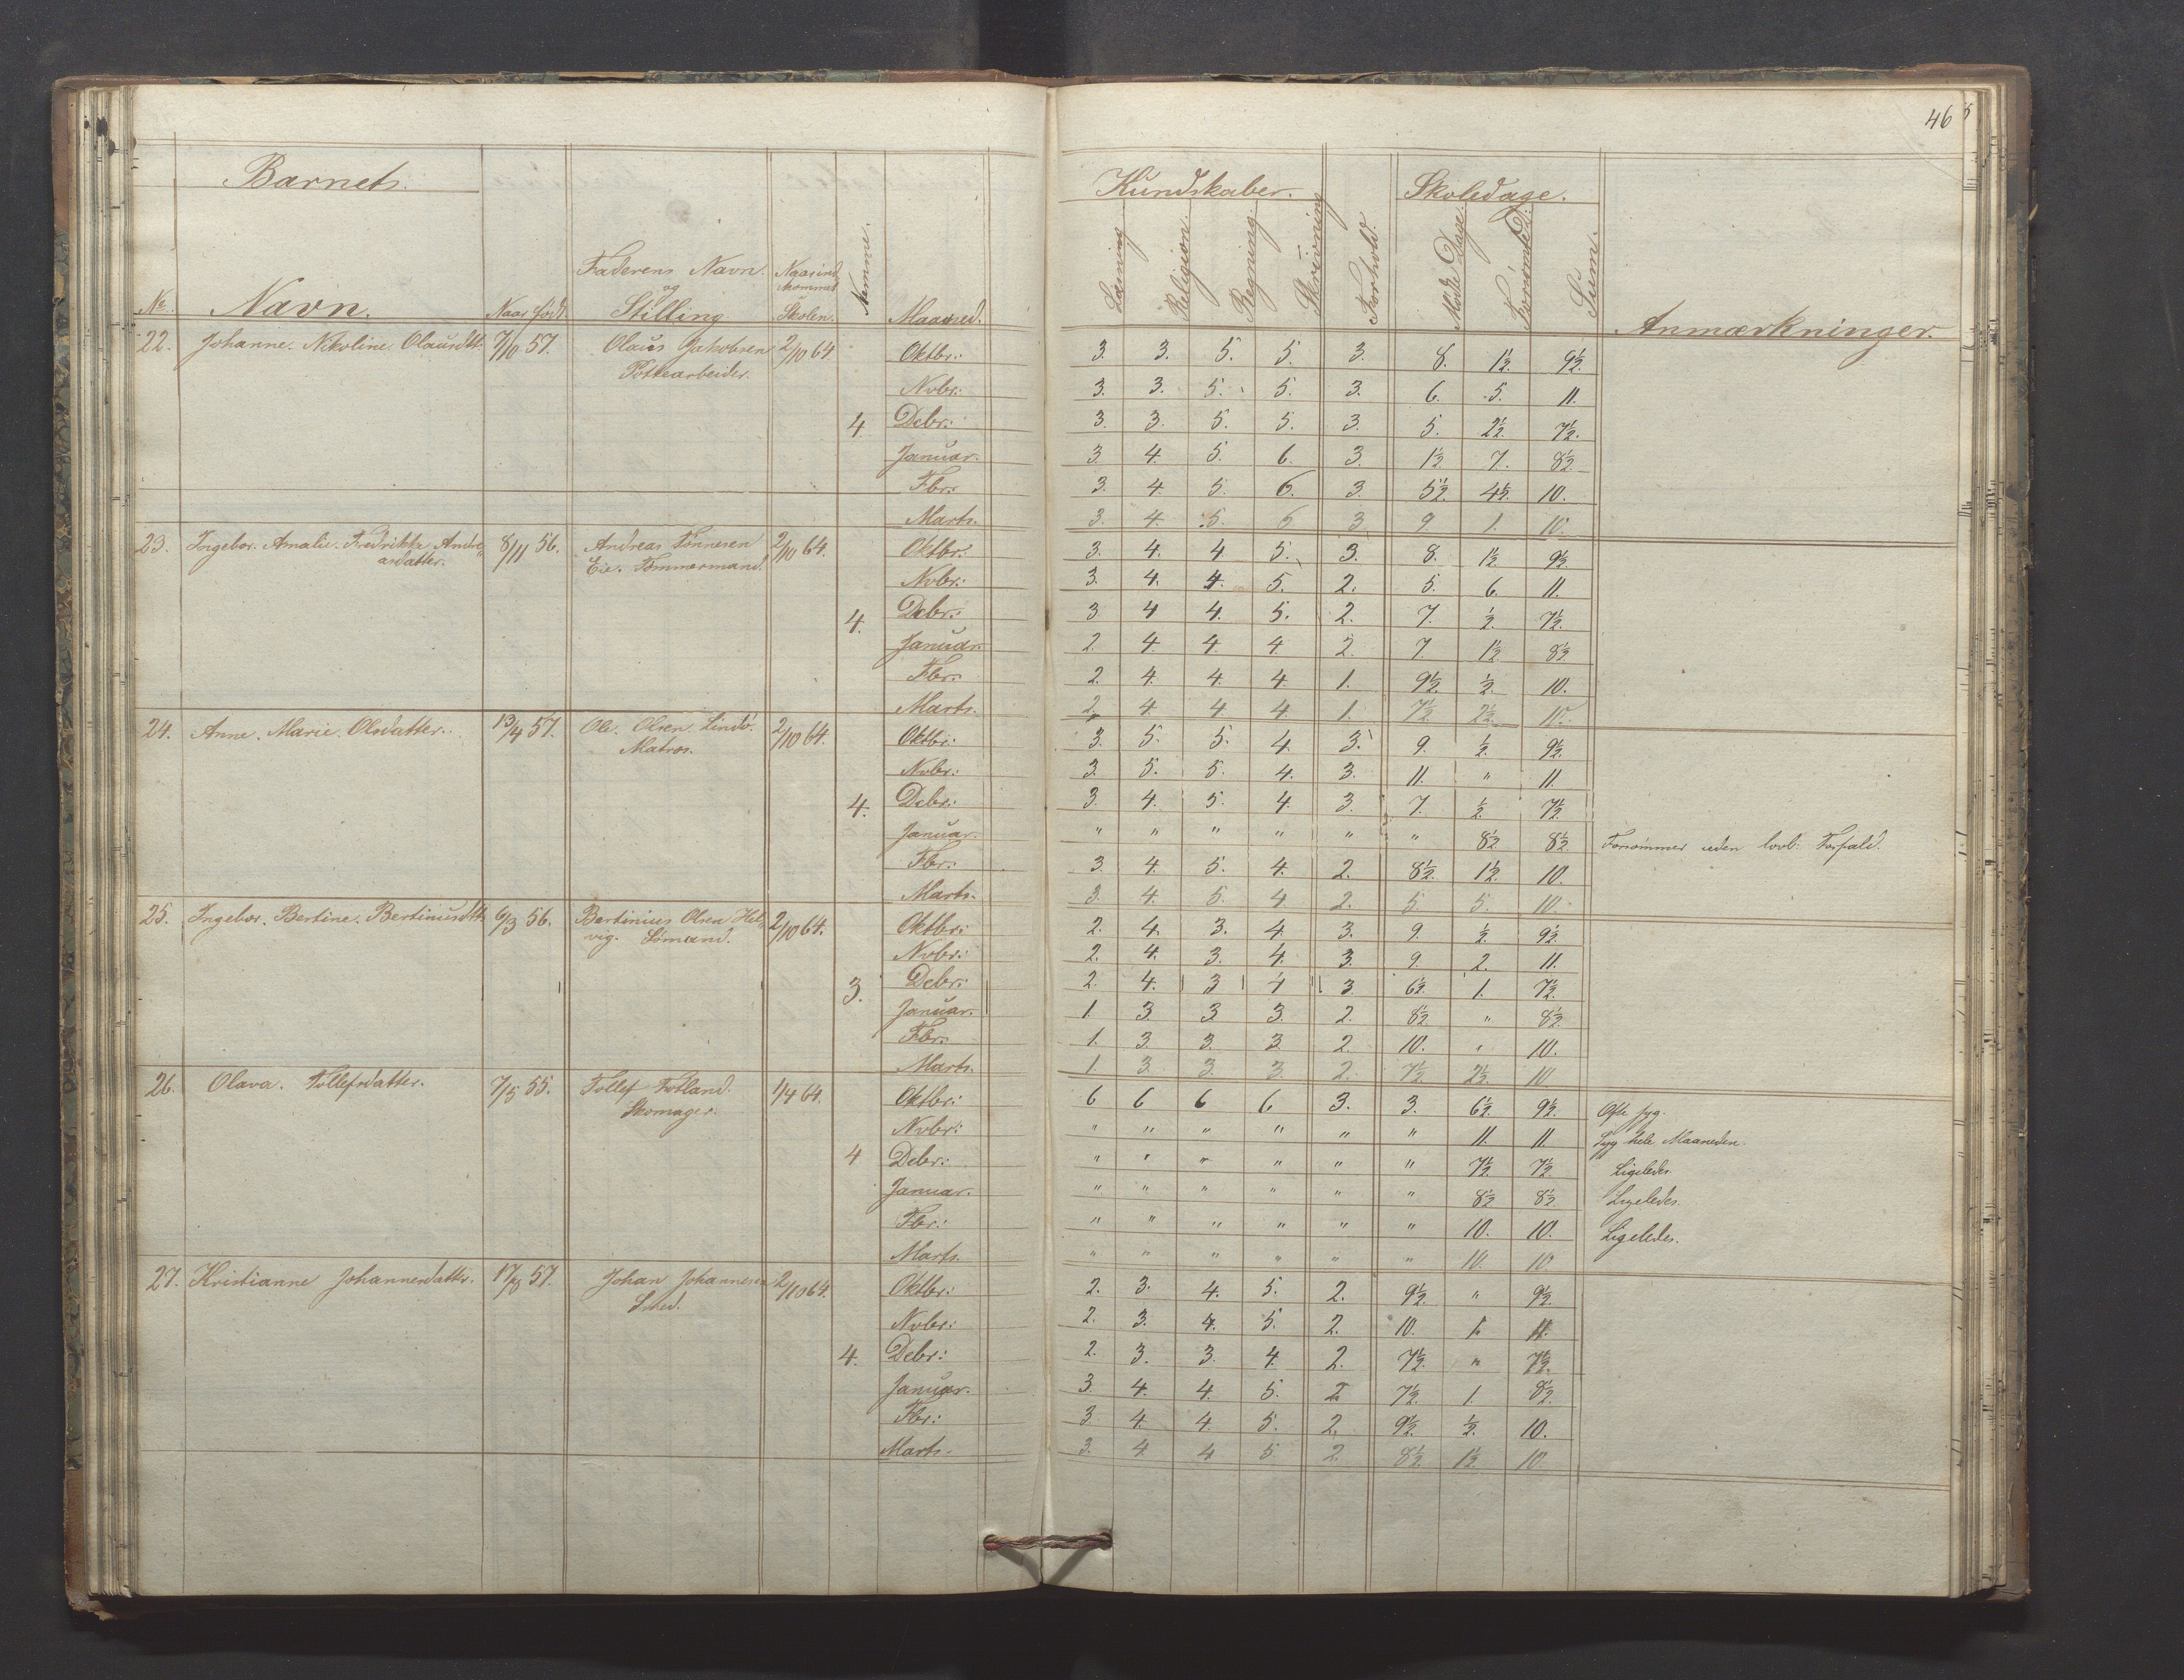 46
Barnets.
No. Navn. Naar född. Faderens Navn og Stilling Naar ind kommet Skolen. Nemme. Maaned.
Kundskaber. Skoledage.
Læsning Religion. Regning. Skrivning Forhold. Mødte Dage. Forsømte D. Sum. Anmærkninger.
22. Johanne. Nikoline Olausdtt. 7/10 57. Olaus Jakobsen 2/10 64. Oktbr: 3. 3. 5. 5. 3. 8. 1½. 9½.
Pottearbeider.
Nvbr: 3. 3. 5. 5. 3. 6. 5. 11.
4. Debr: 3. 3. 5. 5. 3. 5. 2½. 7½.
Januar. 3. 4. 5. 6. 3. 1½ 7. 8½
Fbr: 3. 4. 5. 6. 3. 5½. 4½. 10.
Marts. 3. 4. 5. 6 3 9 1. 10.
23. Ingebor. Amalie. Fredrikke Andre 8/11 56. Andreas Tönnesen 2/10 64. Oktbr: 3. 4. 4 5. 3. 8. 1½ 9½
asdatter. Eie. Tømmermand.
Nvbr: 3. 4. 4. 5. 2. 5. 6. 11.
4. Debr: 3 4 4. 5. 2. 7. ½. 7½.
Januar. 2. 4. 4 4 2. 7 1½. 8½
Fbr: 2. 4. 4. 4. 1. 9½. ½. 10.
Marts. 2. 4 4 4. 1. 7½ 2½. 10.
24. Anne. Marie. Olsdatter. 13/4 57. Ole. Olsen Lindö. 2/10 64. Oktbr: 3. 5. 5. 4. 3. 9. ½. 9½.
Matros.
Nvbr: 3. 5. 5. 4. 3. 11. " 11.
4. Debr: 3. 4. 5. 4. 3. 7. ½. 7½.
Januar. " " " " " " 8½ 8½. Forsömmer uden lovl. Forfald.
Fbr: 3. 4. 5. 4. 2. 8½. 1½. 10.
Marts. 3. 4. 5. 4 2. 5. 5. 10.
25. Ingebor. Bertine. Bertinusdtt. 6/3 56. Bertinius Olsen Hel 2/10 64. Oktbr: 2. 4. 3. 4. 3. 9. ½. 9½.
vig. Sömand.
Nvbr: 2. 4. 3. 4. 3. 9. 2. 11.
3. Debr: 2. 4. 3 4 3. 6½. 1. 7½.
Januar. 1. 3 3 3. 2. 8½ " 8½.
Fbr: 1. 3. 3. 3 2. 10. " 10.
Marts. 1. 3. 3 3. 2. 7½ 2½. 10
26. Olava. Tollefsdatter. 7/5 55. Tollef Totland. 1/4 64. Oktbr: 6 6 6 6 3. 3. 6½. 9½. Ofte syg.
Skomager.
Nvbr: " " " " " " 11. 11 Syg hele Maaneden.
4 Debr: " " " " " " 7½. 7½ Ligeledes.
Januar. " " " " " " 8½ 8½. Ligeledes.
Fbr: " " " " " " 10. 10. Ligeledes.
Marts. " " " " " " 10. 10
27. Kristianne Johannesdatter. 17/8 57. Johan Johannesen 2/10 64. Oktbr: 2. 3. 4. 5. 2. 9½. " 9½.
Smed.
Nvbr: 2. 3. 4. 5. 2. 10. 1. 11.
4. Debr: 2. 3. 3. 4. 2. 7½. " 7½.
Januar. 3. 4. 4. 5. 2 7½. 1. 8½.
Fbr: 3 4. 4. 5. 2. 9½. ½. 10.
Marts. 3. 4 4 5 2 8½. 1½. 10